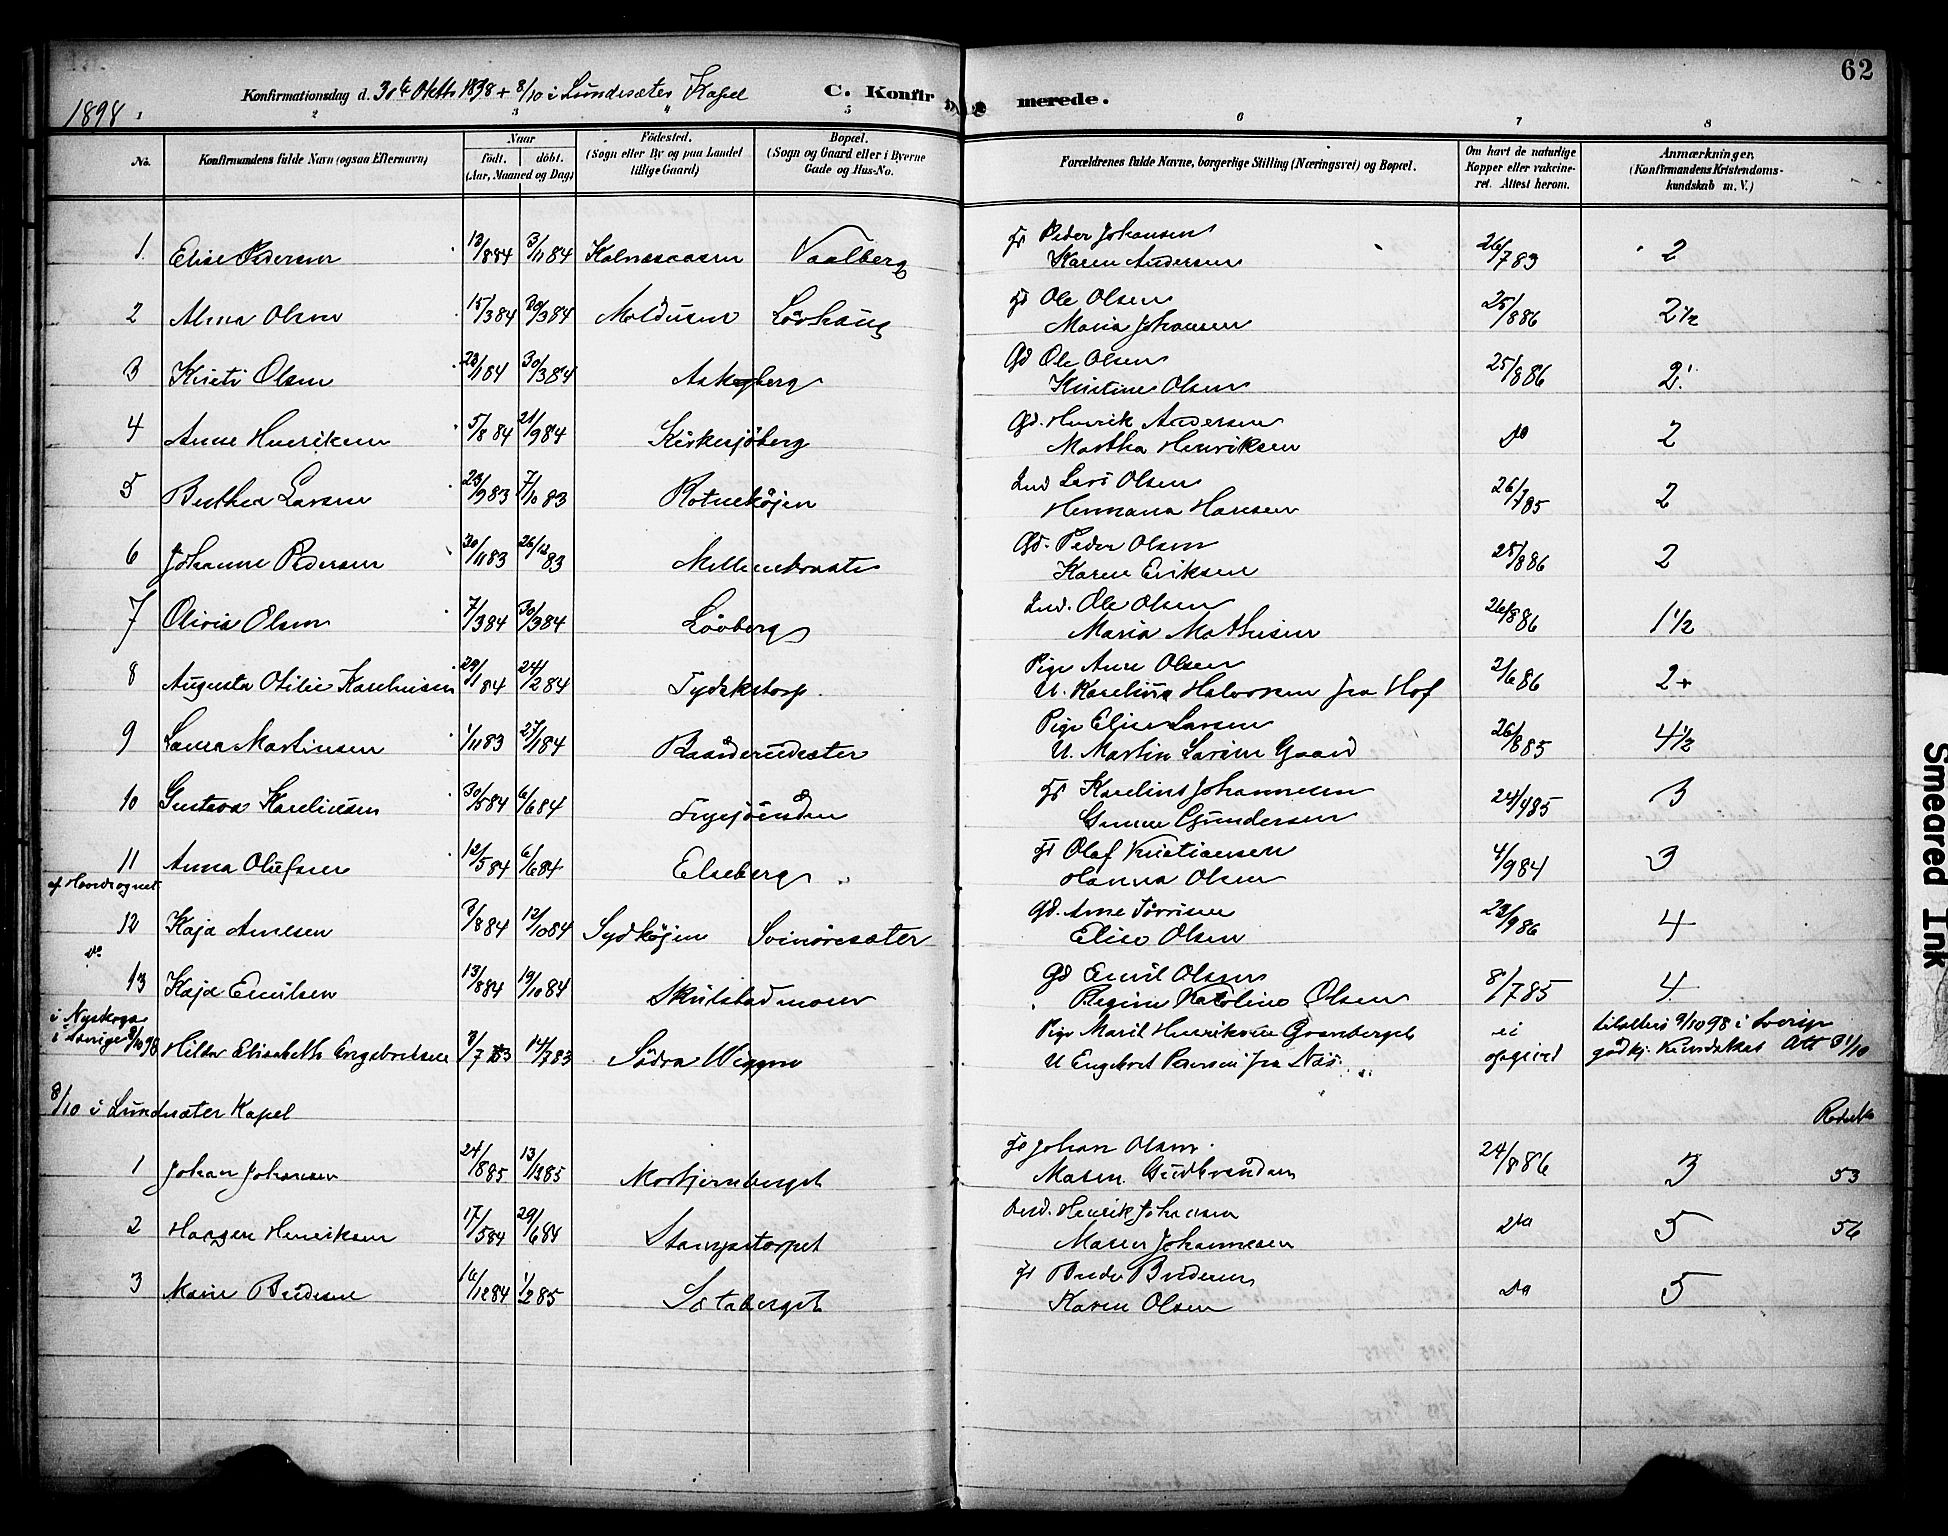 62
1898
Konfirmationsdag d. 30te Oktb 1898 + 8/10 i Lundesæter Kapel
C. Konfirmerede.
2 3 4 5 6 7 8
No. Konfirmandens fulde Navn (ogsaa Efternavn) Naar født. døbt. (Aar, Maaned og Dag) Fødested. (Sogn eller By og paa Landet tillige Gaard) Bopæl. (Sogn og Gaard eller i Byerne Gade og Hus-No. Forældrenes fulde Navne, borgerlige Stilling (Næringsvei) og Bopæl. Om havt de naturlige Kopper eller vakcineret. Attest herom. Anmærkninger, (Konfirmandens Kristendomskundskab m. V.)
1. Elise Pedersen 13/8 84 3/11 84 Kalnæsaasen Vaalberg Fs Peder Johansen
Karen Andersen 26/7 89 2
2 Alma Olsen 15/3 84 30/3 84 Moldusen Løvhaug Fs Ole Olsen
Maria Johansen 25/8 86 2 1/2
3 Kirsti Olsen 28/1 84 30/3 84 Askogberg Gd Ole Olsen
Kristine Olsen 25/8 86 2
4 Anne Henriksen 5/8 84 21/9 84 Kirkesjøberg Gd. Henrik Andersen
Martha Henriksen Do 2
5 Berthea Larsen 23/9 83 7/10 83 Rotnekøjen Ind Lars Olsen
Hermana Hansen 26/7 85 2
6 Johanne Pedersen 30/11 83 26/12 83 Mellembraate Gd. Peder Olsen
Karen Eriksen 25/8 86 2
7 Olivia Olsen 7/3 84 30/3 84 Løvberg Ind. Ole Olsen
Maria Mathisen 26/8 86 1 1/2
8 Augusta Otilie Karelinsen 29/1 84 24/2 84 Tydskstorp Pige Anne Olsen
U. Karelius Halvorsen fra Hof 2/6 86 2+
9 Laura Martinsen 1/11 83 27/1 84 Baarderudsæter Pige Elise Larsen
U. Martin Larsen Gaard 26/8 85 4 1/2
10 Gustava Karelinsen 30/5 84 6/6 84 Frysjøenden Fs Karelius Johannesen
Gunne Gundersen 24/9 85 3
11 Anna Olufsen 12/5 84 6/6 84 Elseberg Fs Olaf Kristiansen
Hanna Olsen 4/9 84 3
af Hovedsognet
12 Kaja Arnesen 3/8 84 12/10 84 Sydkøjen Svinøresæter Gd. Arne Tørrisen
Elise Olsen 23/9 86 4
Do
13 Kaja Emilsen 13/8 84 19/10 84 Skulstadmoen Gd Emil Olsen
Regine Karoline Olsen 8/7 85 4
i Nyskoga
i Sverige 9/10 98 Hilda Elisabeth Engebretsen 3/7 83 14/7 83 Södra Viggen Pige Marit Henriksen Granberget
U Engebret Pedersen fra Näs ei
opgivet tilsattes 9/10 98 i Sverige
godkj. Kundskab Att 31/10
8/10 i Lundesæter Kapel
1 Johan Johansen 24/8 85 13/12 85 Mortjernberget Fs Johan Olsen
Maren Gudbrandsen 24/8 86 3 53
2 Haagen Henriksen 17/5 84 29/6 84 Stampetorpet Ind. Henrik Johansen
Maren Johannesen Do 5 56
3 Marie Bredesen 16/12 84 1/2 85 Sætaberget Fs Brede Bredesen
Karen Olsen Do 5
Smeared Ink